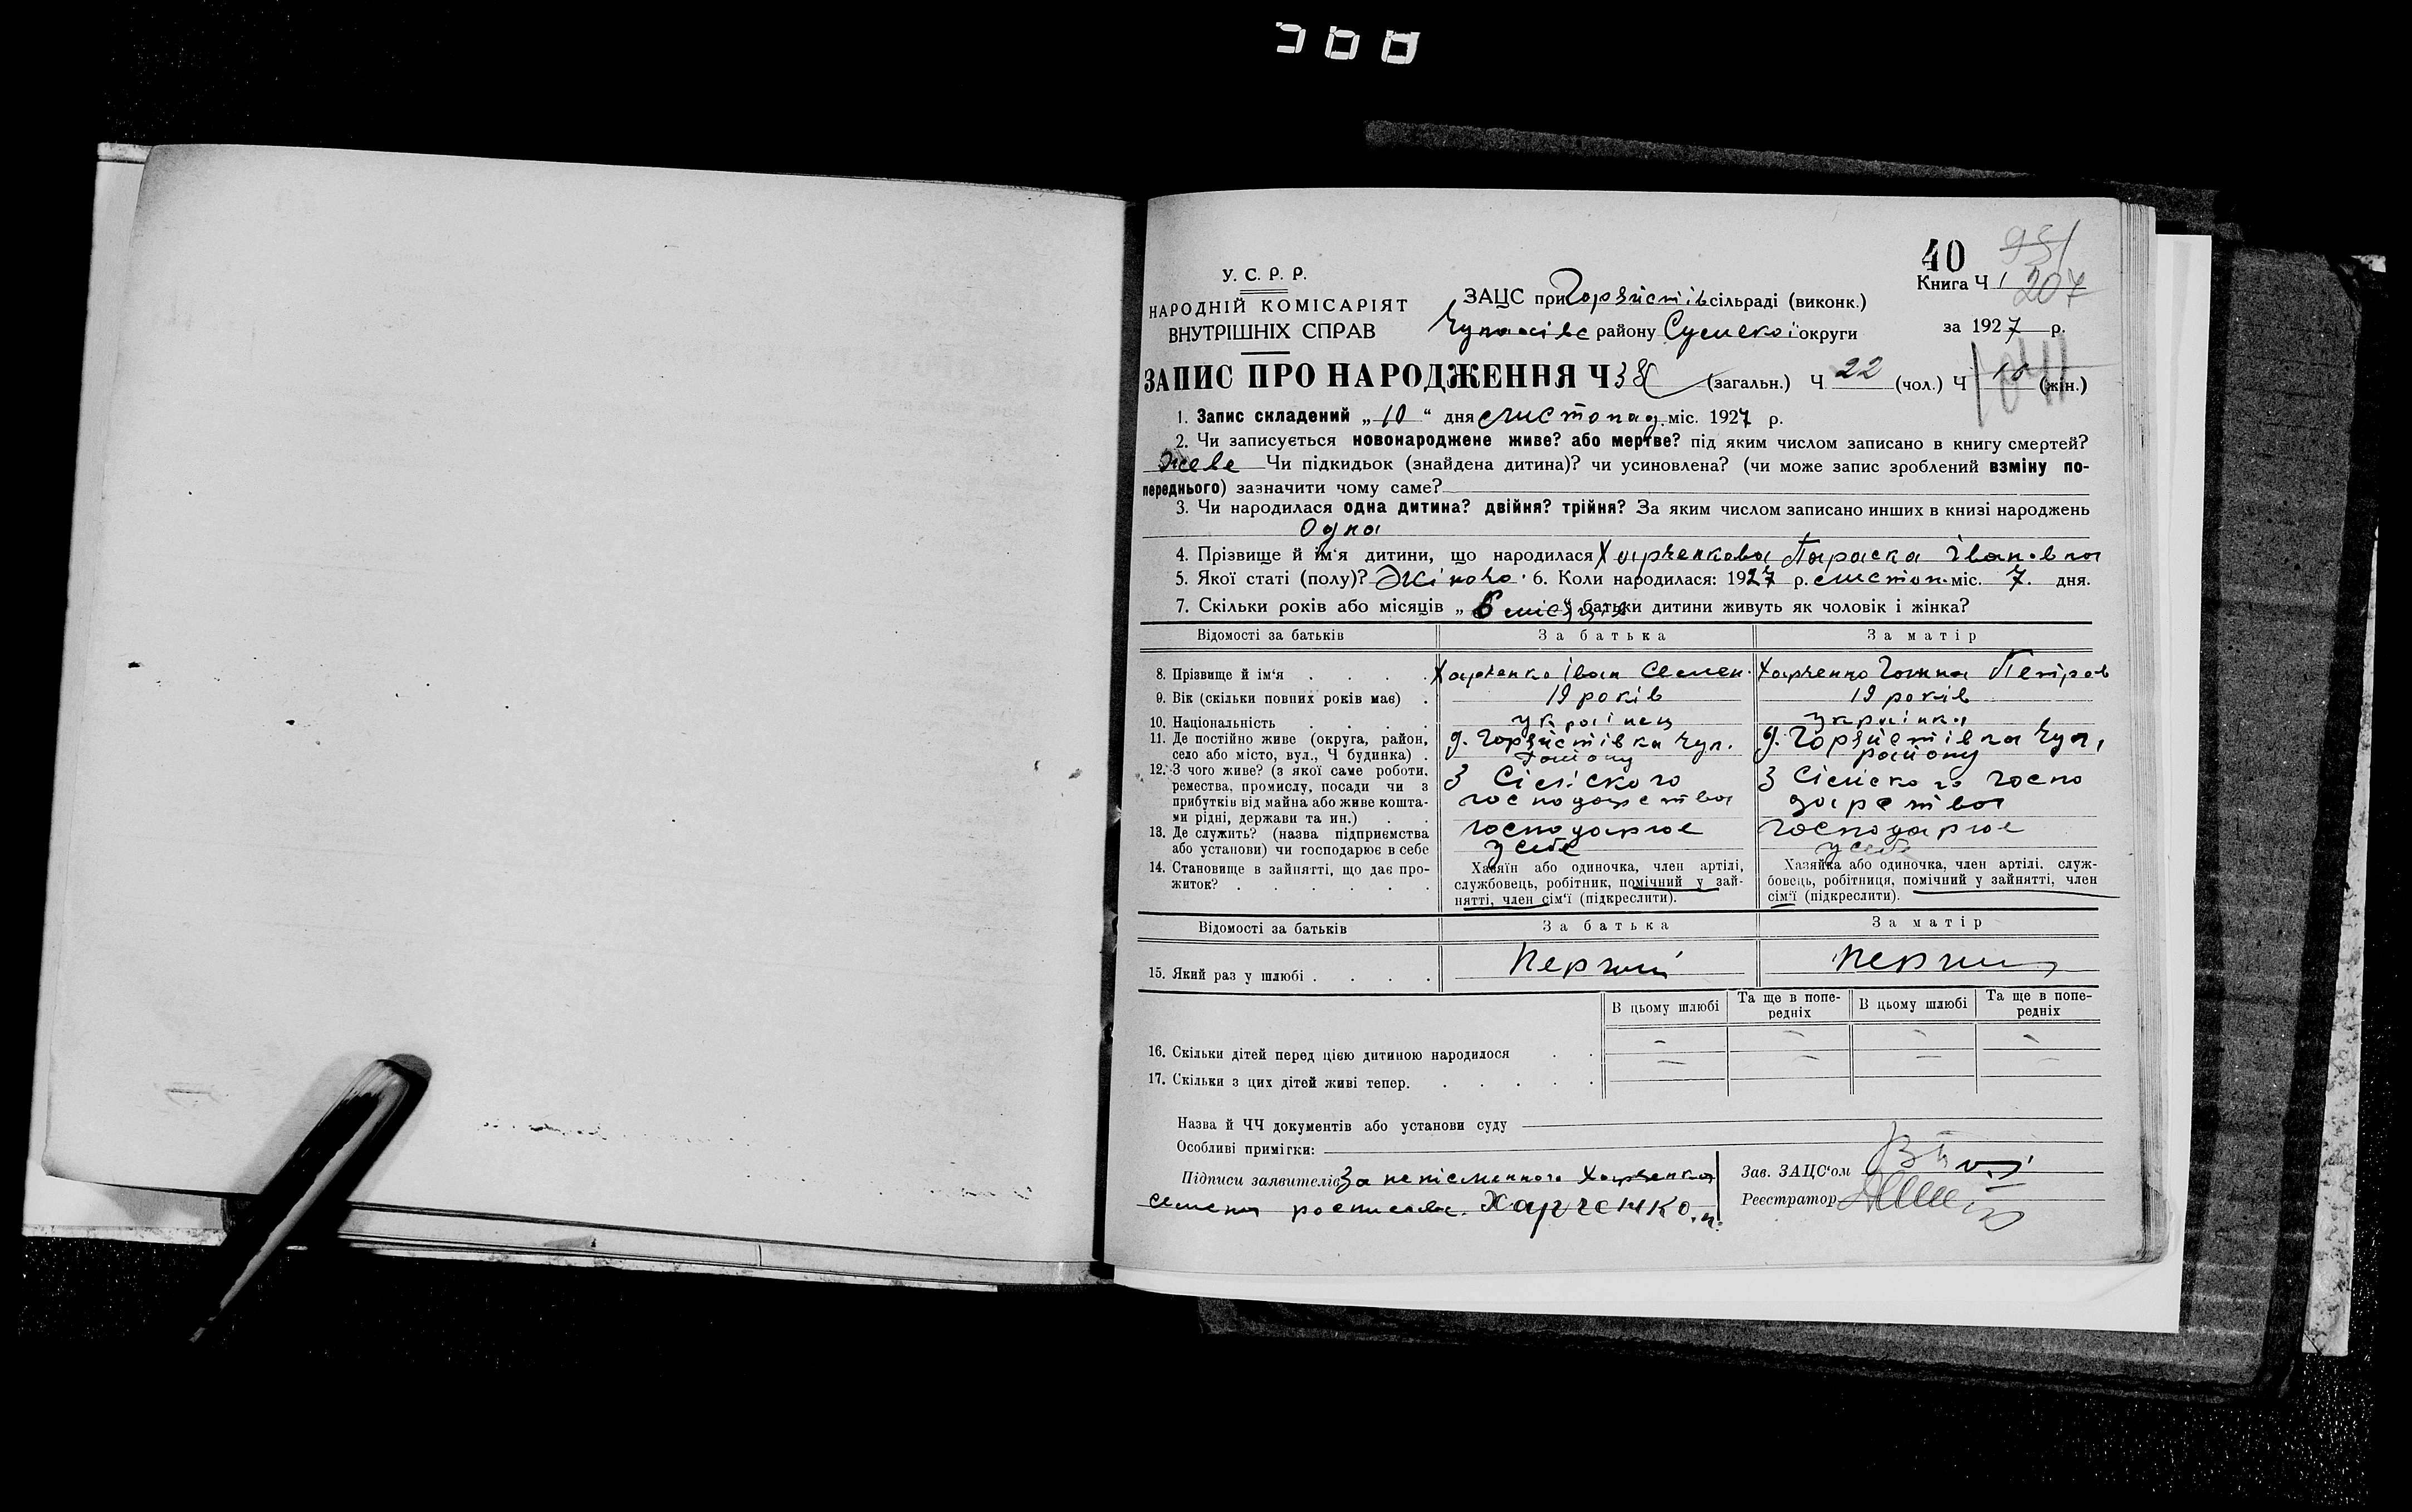 40
951
У. С. Р. Р.
НАРОДНІЙ КОМІСАРІЯТ
ВНУТРІШНІХ СПРАВ
ЗАЦС при сільраді (виконк.)
Книга Ч 1 207
району Сумскої округи
за 1927 р.
ЗАПИС ПРО НАРОДЖЕННЯ Ч 38 (загальн.) Ч 22 (чол.) Ч (жін.)
1. Запис складений „ 10 “ дня листопад. міс. 1927 р.
2. Чи записується новонароджене живе? або мертве? під яким числом записано в книгу смертей?
живе Чи підкидьок (знайдена дитина)? чи усиновлена? (чи може запис зроблений взміну по-
переднього) зазначити чому саме?
3. Чи народилася одна дитина? двійня? трійня? За яким числом записано инших в книзі народжень
Одна
4. Прізвище й ім‘я дитини, що народилася Харченкова Параска Івановна
5. Якої статі (полу)? Жіночо. 6. Коли народилася: 1927 р. листоп. міс. 7. дня.
7. Скільки років або місяців „ 6 місяців “ батьки дитини живуть як чоловік і жінка?
Відомості за батьків За батька За матір
8. Прізвище й ім‘я Харченко Іван Семен. Харченко Ганна Петров
9. Вік (скільки повних років має) 19 років 19 років
10. Національність українец українка
11. Де постійно живе (округа, район,
село або місто, вул., Ч будинка)
району району
12. З чого живе? (з якої саме роботи,
ремества, промислу, посади чи з
прибутків від майна або живе кошта-
ми рідні, держави та ин.)
З Сільского
господарства
З Сільского госпо
дарства
13. Де служить? (назва підприємства
або установи) чи господарює в себе
господарює
у себе
господарює
у себе
14. Становище в зайнятті, що дає про-
житок?
Хазяїн або одиночка, член артілі,
службовець, робітник, помічний у зай-
нятті, член сім‘ї (підкреслити).
Хазяйка або одиночка, член артілі. служ-
бовець, робітниця, помічний у зайнятті, член
сім‘ї (підкреслити).
Відомості за батьків За батька За матір
15. Який раз у шлюбі Перший Перший
В цьому шлюбі Та ще в попе-
редніх В цьому шлюбі Та ще в попе-
редніх
16. Скільки дітей перед цією дитиною народилося - - - -
17. Скільки з цих дітей живі тепер. - - - -
Назва й ЧЧ документів або установи суду
Особливі примітки:
Підписи заявителів За неписменного Харченка
Семена росписався. Харченко. и.
Зав. ЗАЦС‘ом
Реєстратор